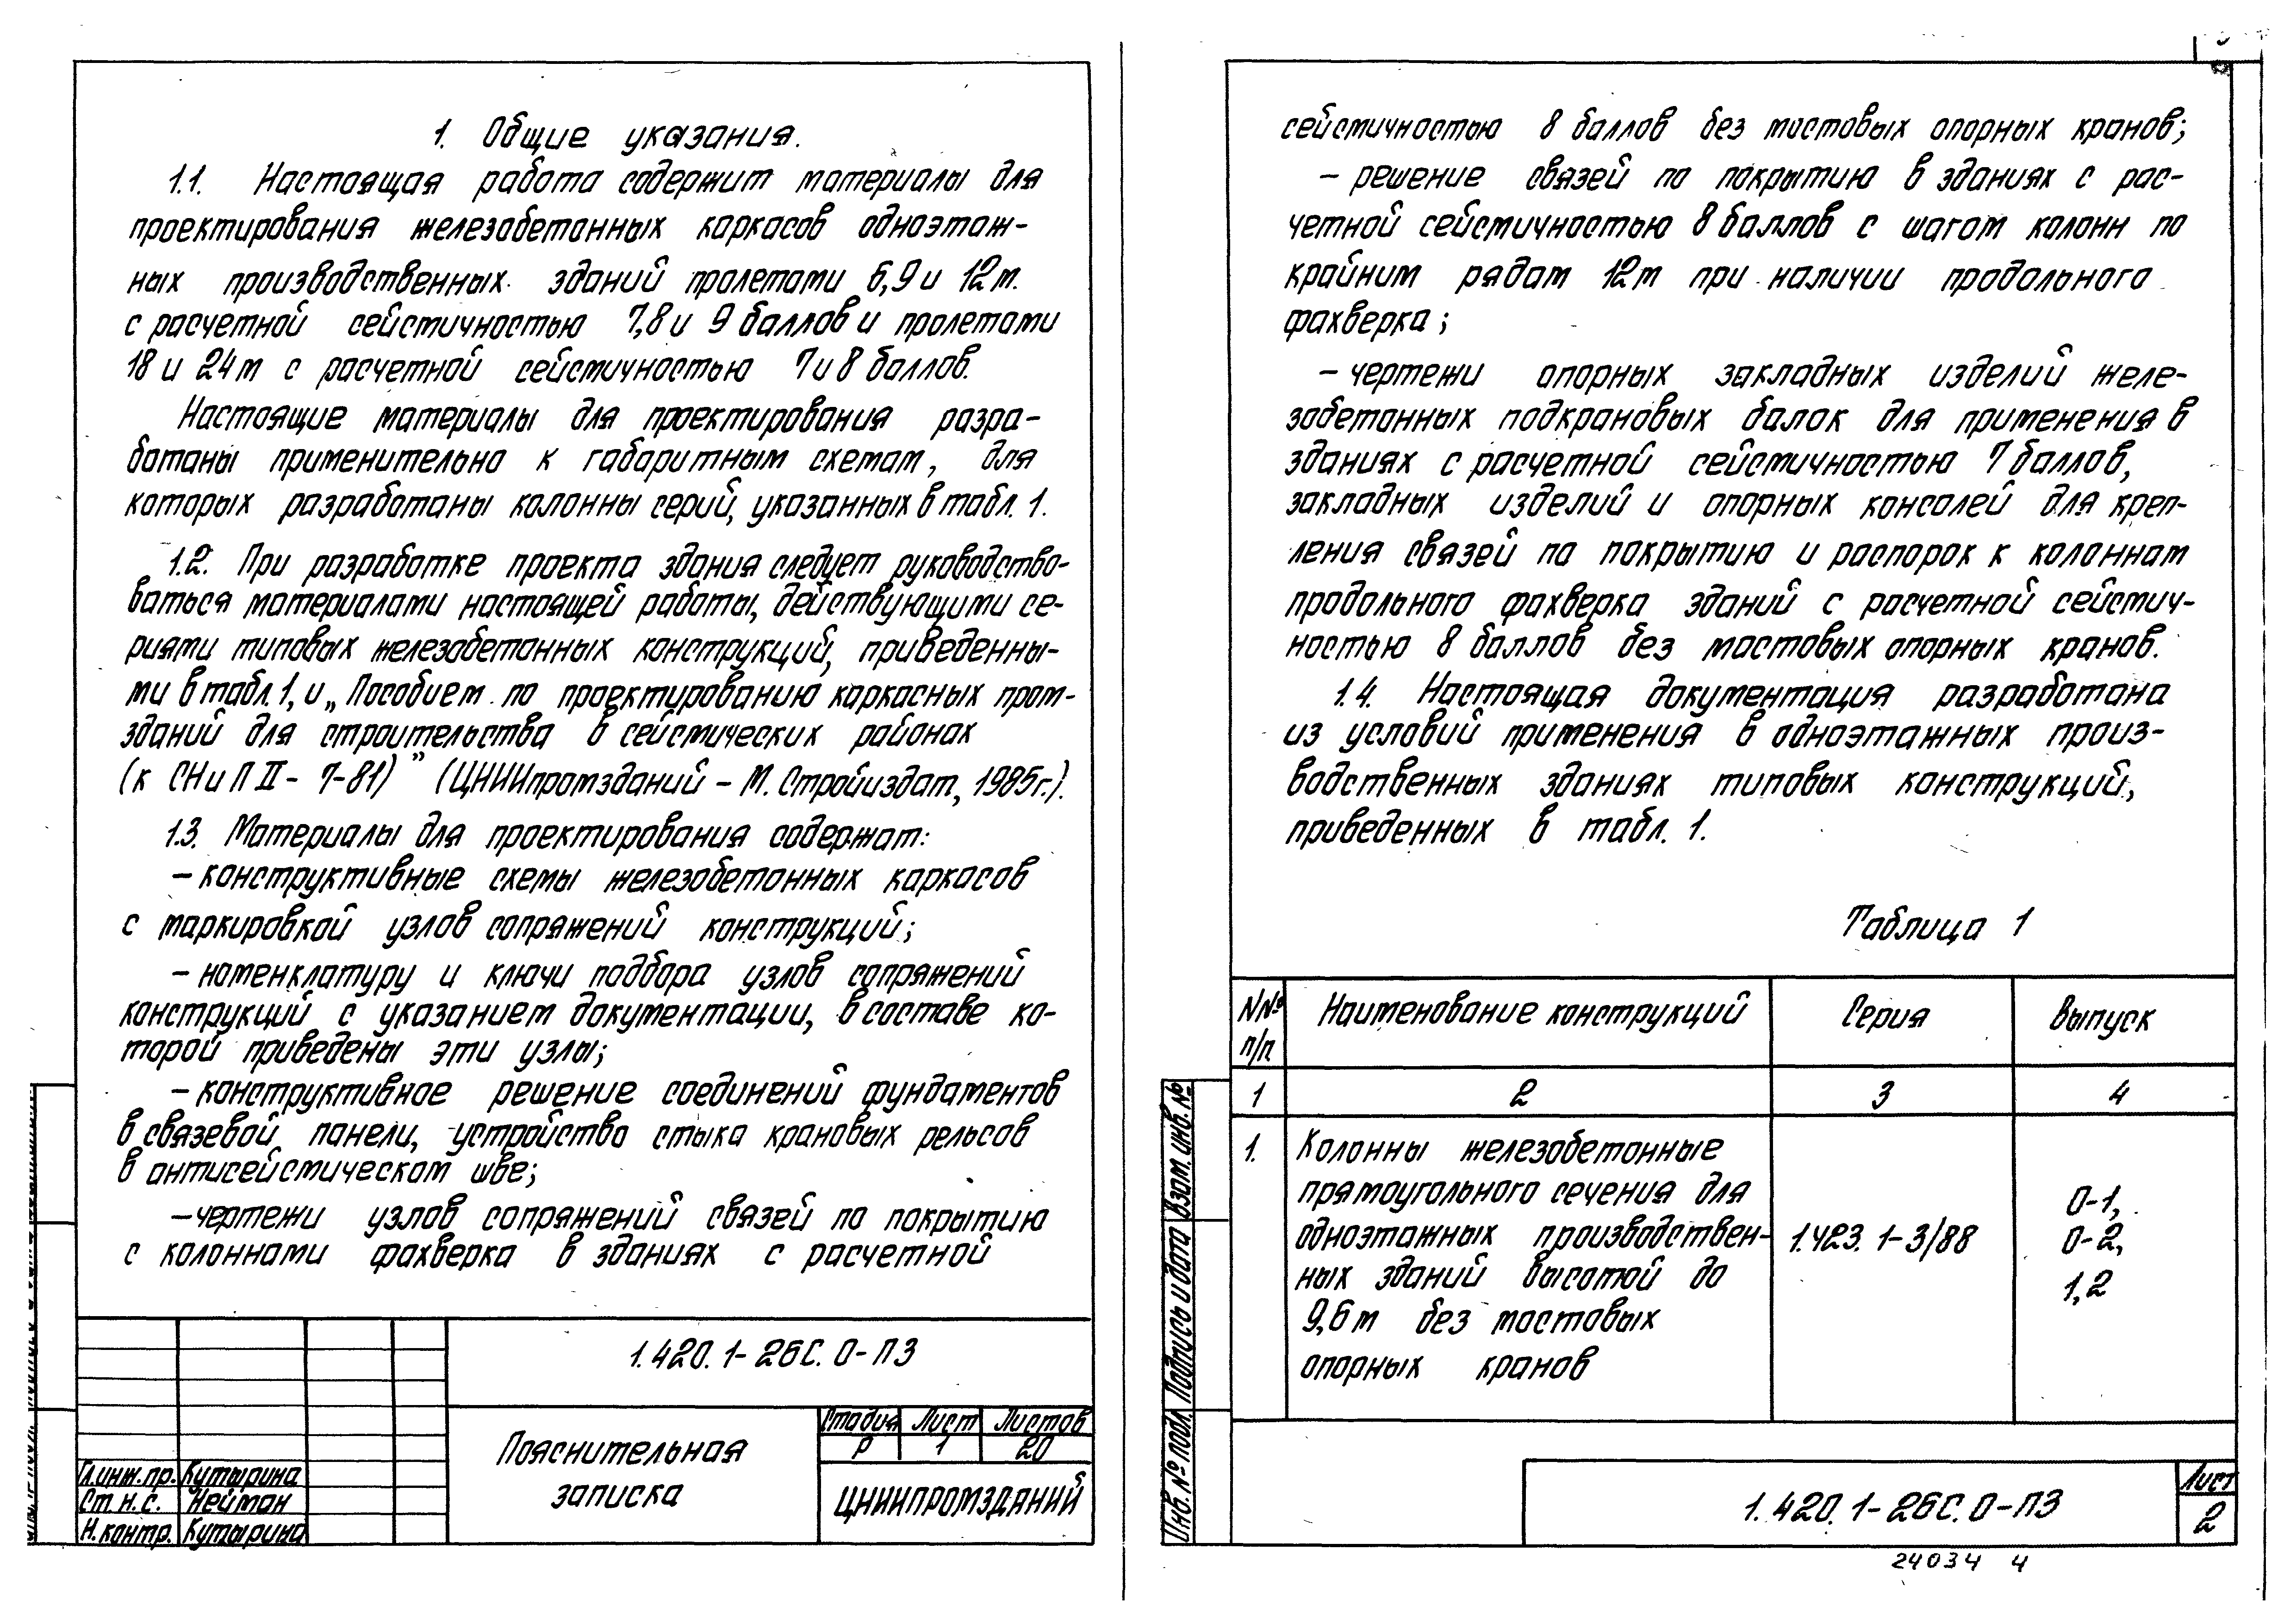 1. Общие указания.
1.1. Настоящая работа содержит материалы для
проектирования железобетонных каркасов одноэтаж-
ных производственных зданий пролетами 6,9 и 12 м.
с расчетной сейсмичностью 7,8 и 9 баллов и пролетами
18 и 24 м с расчетной сейсмичностью 7 и 8 баллов.
Настоящие материалы для проектирования разра-
ботаны применительно к габаритным схемам, для
которых разработаны колонны серий, указанных в табл. 1.
1.2. При разработке проекта здания следует руководство-
ваться материалами настоящей работы, действующими се-
риями типовых железобетонных конструкций, приведенны-
ми в табл. 1, и „Пособием по проектированию каркасных пром-
зданий для строительства в сейсмических районах
(к СНиП II-7-81)" (ЦНИИпромзданий – М. Стройиздат, 1985г.).
1.3. Материалы для проектирования содержат:
– конструктивные схемы железобетонных каркасов
с маркировкой узлов сопряжений конструкций;
– номенклатуру и ключи подбора узлов сопряжений
конструкций с указанием документации, в составе ко-
торой приведены эти узлы;
– конструктивное решение соединений фундаментов
в связевой панели, устройство стыка крановых рельсов
в антисейсмическом шве;
– чертежи узлов сопряжений связей по покрытию
с колоннами фахверка в зданиях с расчетной
1.420.1-26С.0-ПЗ
Пояснительная
записка
Стадия Лист Листов
Р 1 20
ЦНИИПРОМЗДАНИЙ
Гл.инж.пр. Кутырина
Ст.н.с. Нейман
Н.контр. Кутырина
сейсмичностью 8 баллов без мостовых опорных кранов;
– решение связей по покрытию в зданиях с рас-
четной сейсмичностью 8 баллов с шагом колонн по
крайним рядам 12 м при наличии продольного
фахверка;
– чертежи опорных закладных изделий желе-
зобетонных подкрановых балок для применения в
зданиях с расчетной сейсмичностью 7 баллов,
закладных изделий и опорных консолей для креп-
ления связей по покрытию и распорок к колоннам
продольного фахверка зданий с расчетной сейсмич-
ностью 8 баллов без мостовых опорных кранов.
1.4. Настоящая документация разработана
из условий применения в одноэтажных произ-
водственных зданиях типовых конструкций,
приведенных в табл. 1.
Таблица 1
NNº п/п. Наименование конструкций Серия Выпуск
1 2 3 4
1. Колонны железобетонные
прямоугольного сечения для
одноэтажных производствен-
ных зданий высотой до
9,6 м без мостовых
опорных кранов
1.423.1-3/88
0-1,
0-2,
1,2
Инв. № подл. Подпись и дата Взам. инв. №
1.420.1-26С.0-ПЗ
Лист
2
24034 4